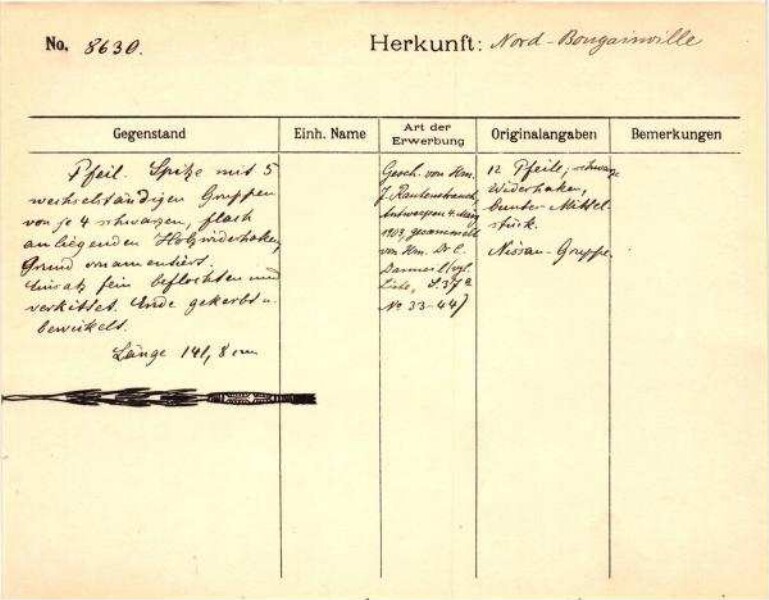 No. 8630.
Herkunft: Nord-Bougainville
Gegenstand
Einh. Name
Art der Erwerbung
Originalangaben
Bemerkungen
Pfeil. Spitze mit 5
wechselständigen Gruppen
von je 4 schwarzen, flach
anliegenden Holzwiderhaken,
Grund ornamentiert.
Einsatz fein beflochten und
verkittet. Ende gekerbt u.
bewickelt.
Länge 141,8 cm
Gesch. von Hrn.
J. Rautenstrauch,
Antwerpen 4. März
1903, gesammelt
von Hrn. Dr C.
(vgl.
Liste, S. 37
No 33-44)
12 Pfeile, schwarze
Widerhaken,
bunter Mittel-
stück.
Nissan-Gruppe.